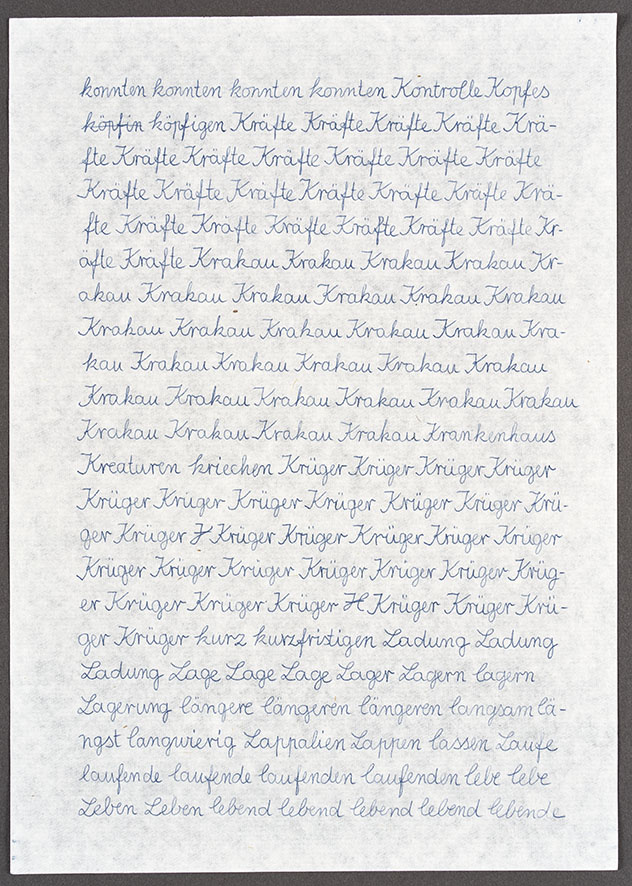 konnten konnten konnten konnten Kontrolle Kopfes
köpfin köpfigen Kräfte Kräfte Kräfte Kräfte Krä-
fte Kräfte Kräfte Kräfte Kräfte Kräfte Kräfte
Kräfte Kräfte Kräfte Kräfte Kräfte Kräfte Krä-
fte Kräfte Kräfte Kräfte Kräfte Kräfte Kräfte Kr-
äfte Kräfte Krakau Krakau Krakau Krakau Kr-
akau Krakau Krakau Krakau Krakau Krakau
Krakau Krakau Krakau Krakau Krakau Kra-
kau Krakau Krakau Krakau Krakau Krakau
Krakau Krakau Krakau Krakau Krakau Krakau
Krakau Krakau Krakau Krakau Krankenhaus
Kreaturen kriechen Krüger Krüger Krüger Krüger
Krüger Krüger Krüger Krüger Krüger Krüger Krü-
ger Krüger Krüger Krüger Krüger Krüger Krüger
Krüger Krüger Krüger Krüger Krüger Krüger Krüg-
er Krüger Krüger Krüger H Krüger Krüger Krü-
ger Krüger kurz kurzfristigen Ladung Ladung
Ladung Lage Lage Lage Lager Lagern lagern
Lagerung längere längeren längeren langsam lä-
ngst langwierig Lappalien Lappen lassen Laufe
laufende laufende laufenden laufenden lebe lebe
Leben Leben lebend lebend lebend lebend lebende